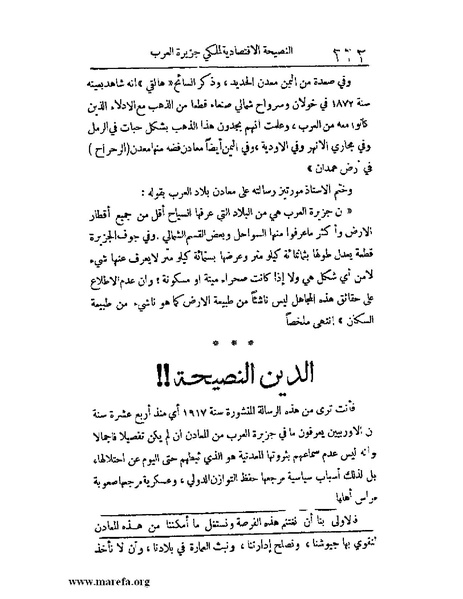 النصيحة الاقتصادية لملكي جزيرة العرب
وفي صعدة من اليمن معدن الحديد، وذكر السائح « هالفي » انه شاهد بعينه
سنة ١٨٧٢ في خولان وسرواح شمالي صنعاء قطعا من الذهب مع الادلاء الذين
كانوا معه من العرب، وعلمت انهم يجدون هذا الذهب بشكل حبات في الرمل
وفي مجاري الانهر وفي الاودية ، وفي اليمن أيضاً معادن فضة منها معدن ( الرحراح )
في أرض همدان »
وختم الاستاذ مورتيز رسالته على معادن بلاد العرب بقوله :
« ن جزيرة العرب هي من البلاد التي عرفها السياح أقل من جميع أقطار
الارض وأكثر ماعرفوا منها السواحل وبعض القسم الشمالي . وفي جوف الجزيرة
قطعة يعدل طولها بثمانمائة كيلو متر وعرضها بستمائة كيلو متر لايعرف عنها شيء
لامن أي شكل هي ولا إذا كانت صحراء ميتة او مسكونة ؟ وان عدم الاطلاع
على حقائق هذه المجاهل ليس ناشئاً من طبيعة الارض كما هو ناشيء من طبيعة
السكان » انتهى ملخصاً
* * *
الدين النصيحة !!
فأنت ترى من هذه الرسالة المنشورة سنة ١٩١٧ أي منذ أربع عشرة سنة
ن الاوربيين يعرفون ما في جزيرة العرب من المعادن ان لم يكن تفصيلا فاجمالا
وانه ليس عدم سماعهم بثروتها المعدنية هو الذي ثبطهم حتى اليوم عن احتلالها،
بل لذلك أسباب سياسية مرجعها حفظ التوازن الدولي ، وعسكرية مرجعها صعوبة
مراس أهلها
فالاولى بنا أن نغتنم هذه الفرصة ونستغل ما أمكننا من هذه المعادن
لنقوي بها جيوشنا ، ونصلح إدارتنا ، ونبث العمارة في بلادنا ، وأن لا نأخذ
www.marefa.org